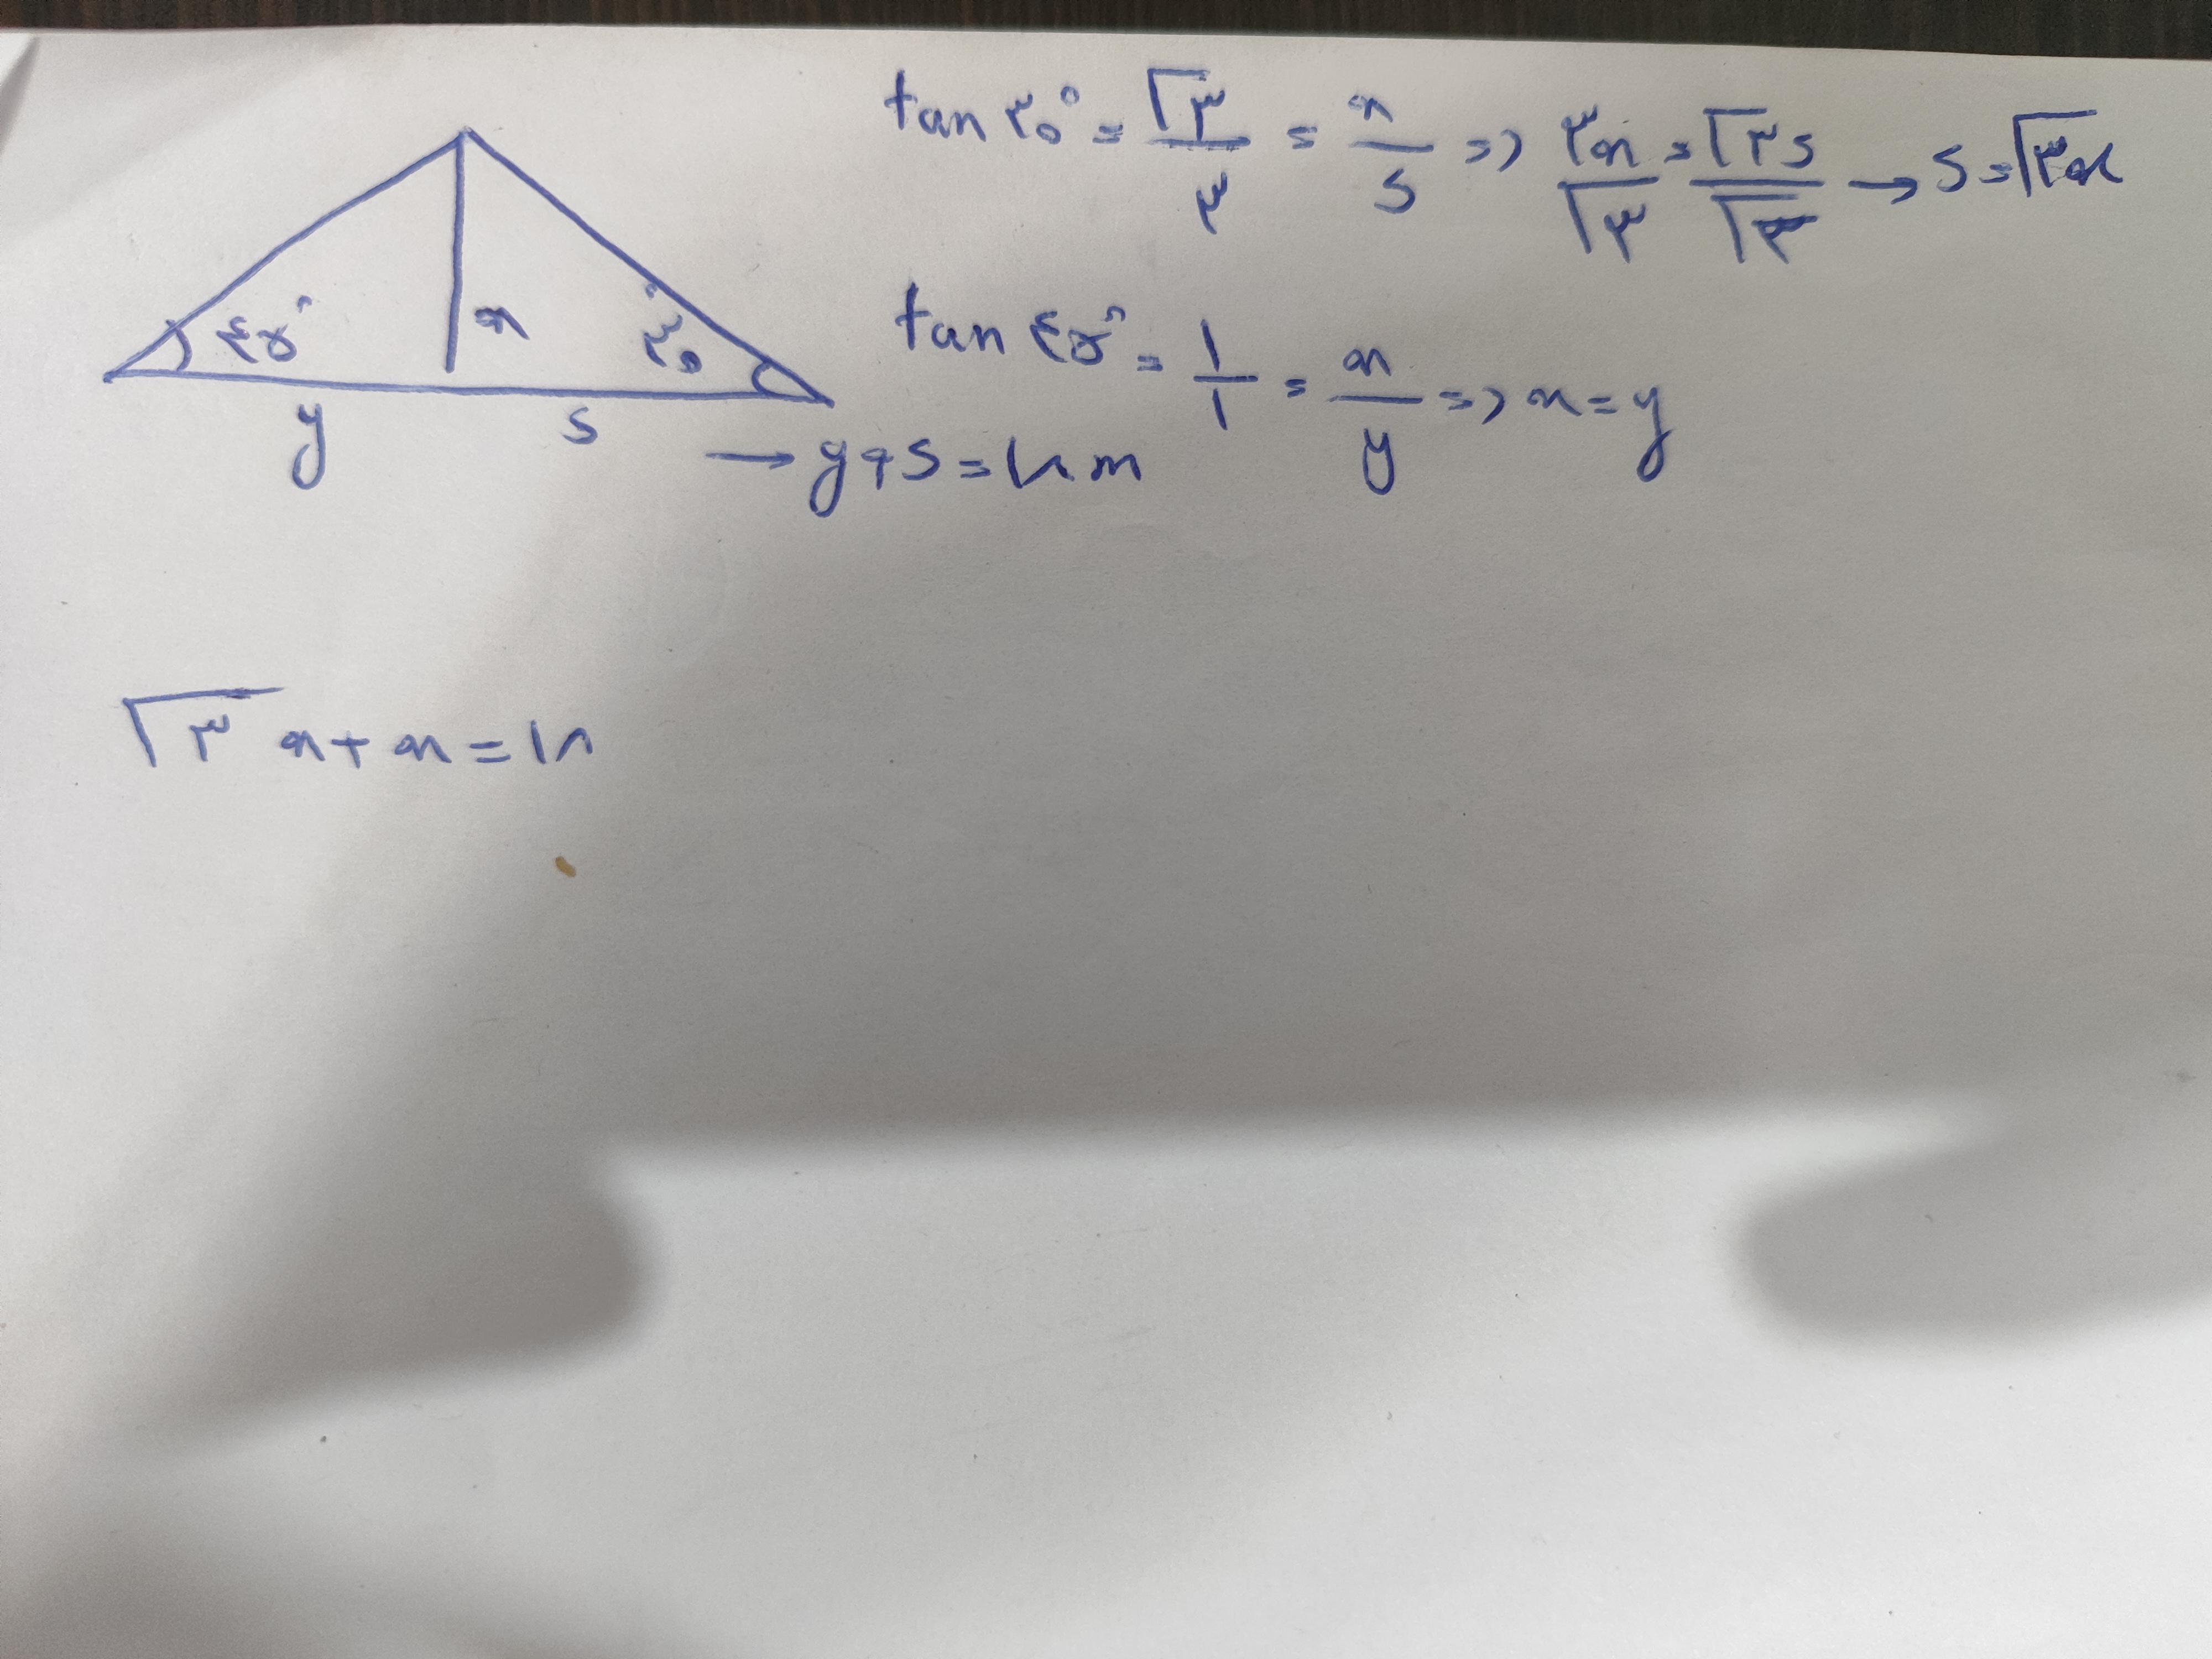 tan ۳۰° = √۳/۳ = x/s => ۳x/√۳ = √۳s/√۳ → s = √۳x
۴۵° x ۳۰°
tan ۴۵° = ۱/۱ = x/y => x = y
y s
→ y + s = ۱۸ m
√۳ x + x = ۱۸